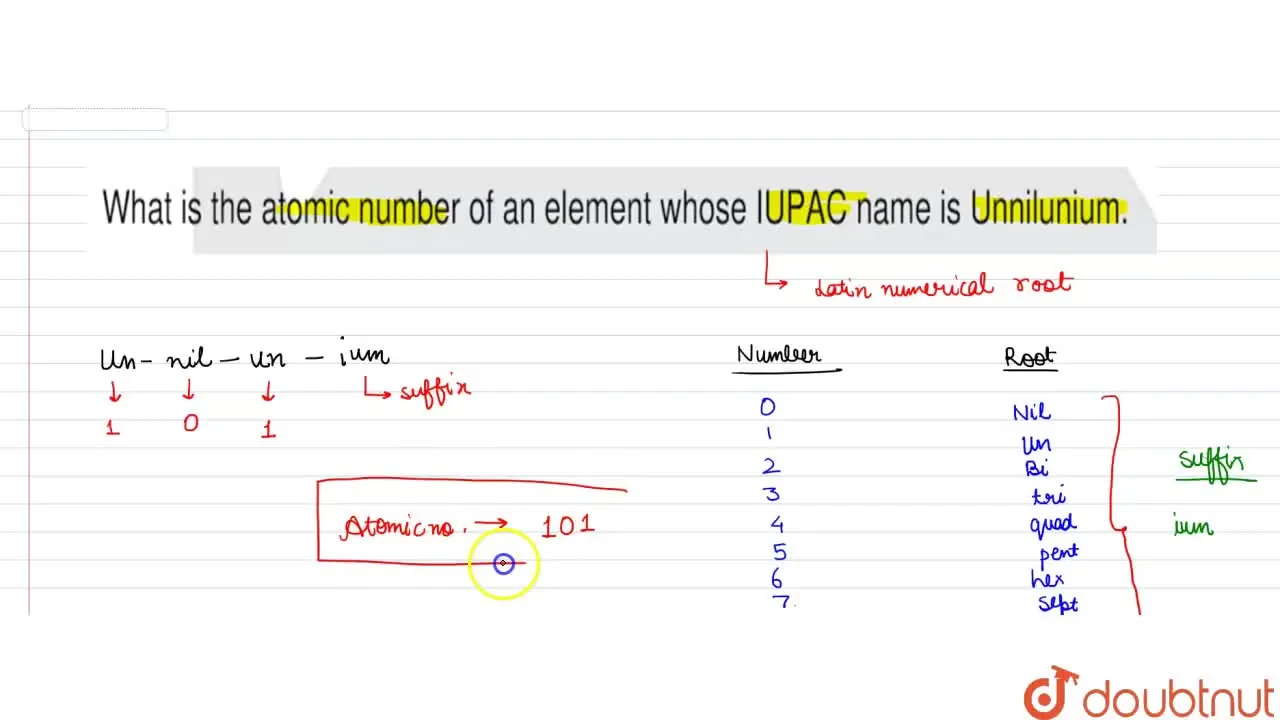 What is the atomic number of an element whose IUPAC name is Unnilunium.
Latin numerical root
Un - nil - un - ium
suffix
1 0 1
Atomic no. → 101
Number Root
0 Nil
1 Un
2 Bi
3 tri
4 quad
5 pent
6 hex
7 Sept
suffix
ium
doubtnut